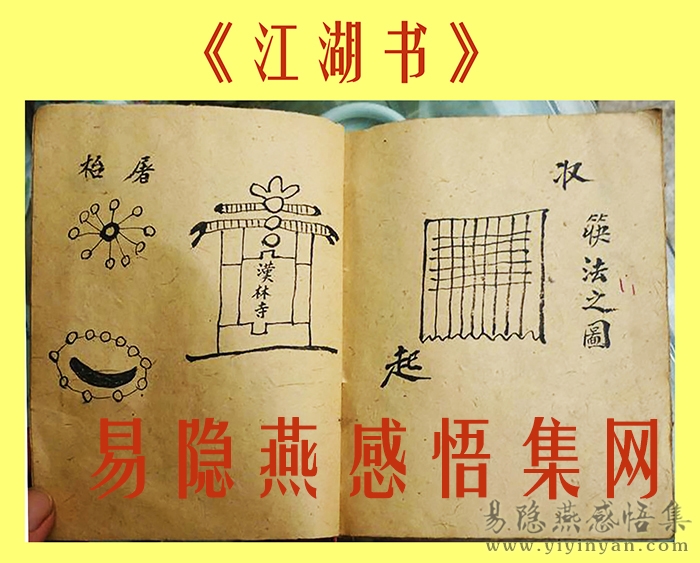 《江湖书》
漢林寺
収
筷法之圖
起
易隐燕感悟集网
易隐燕感悟集
www.yiyinyan.com